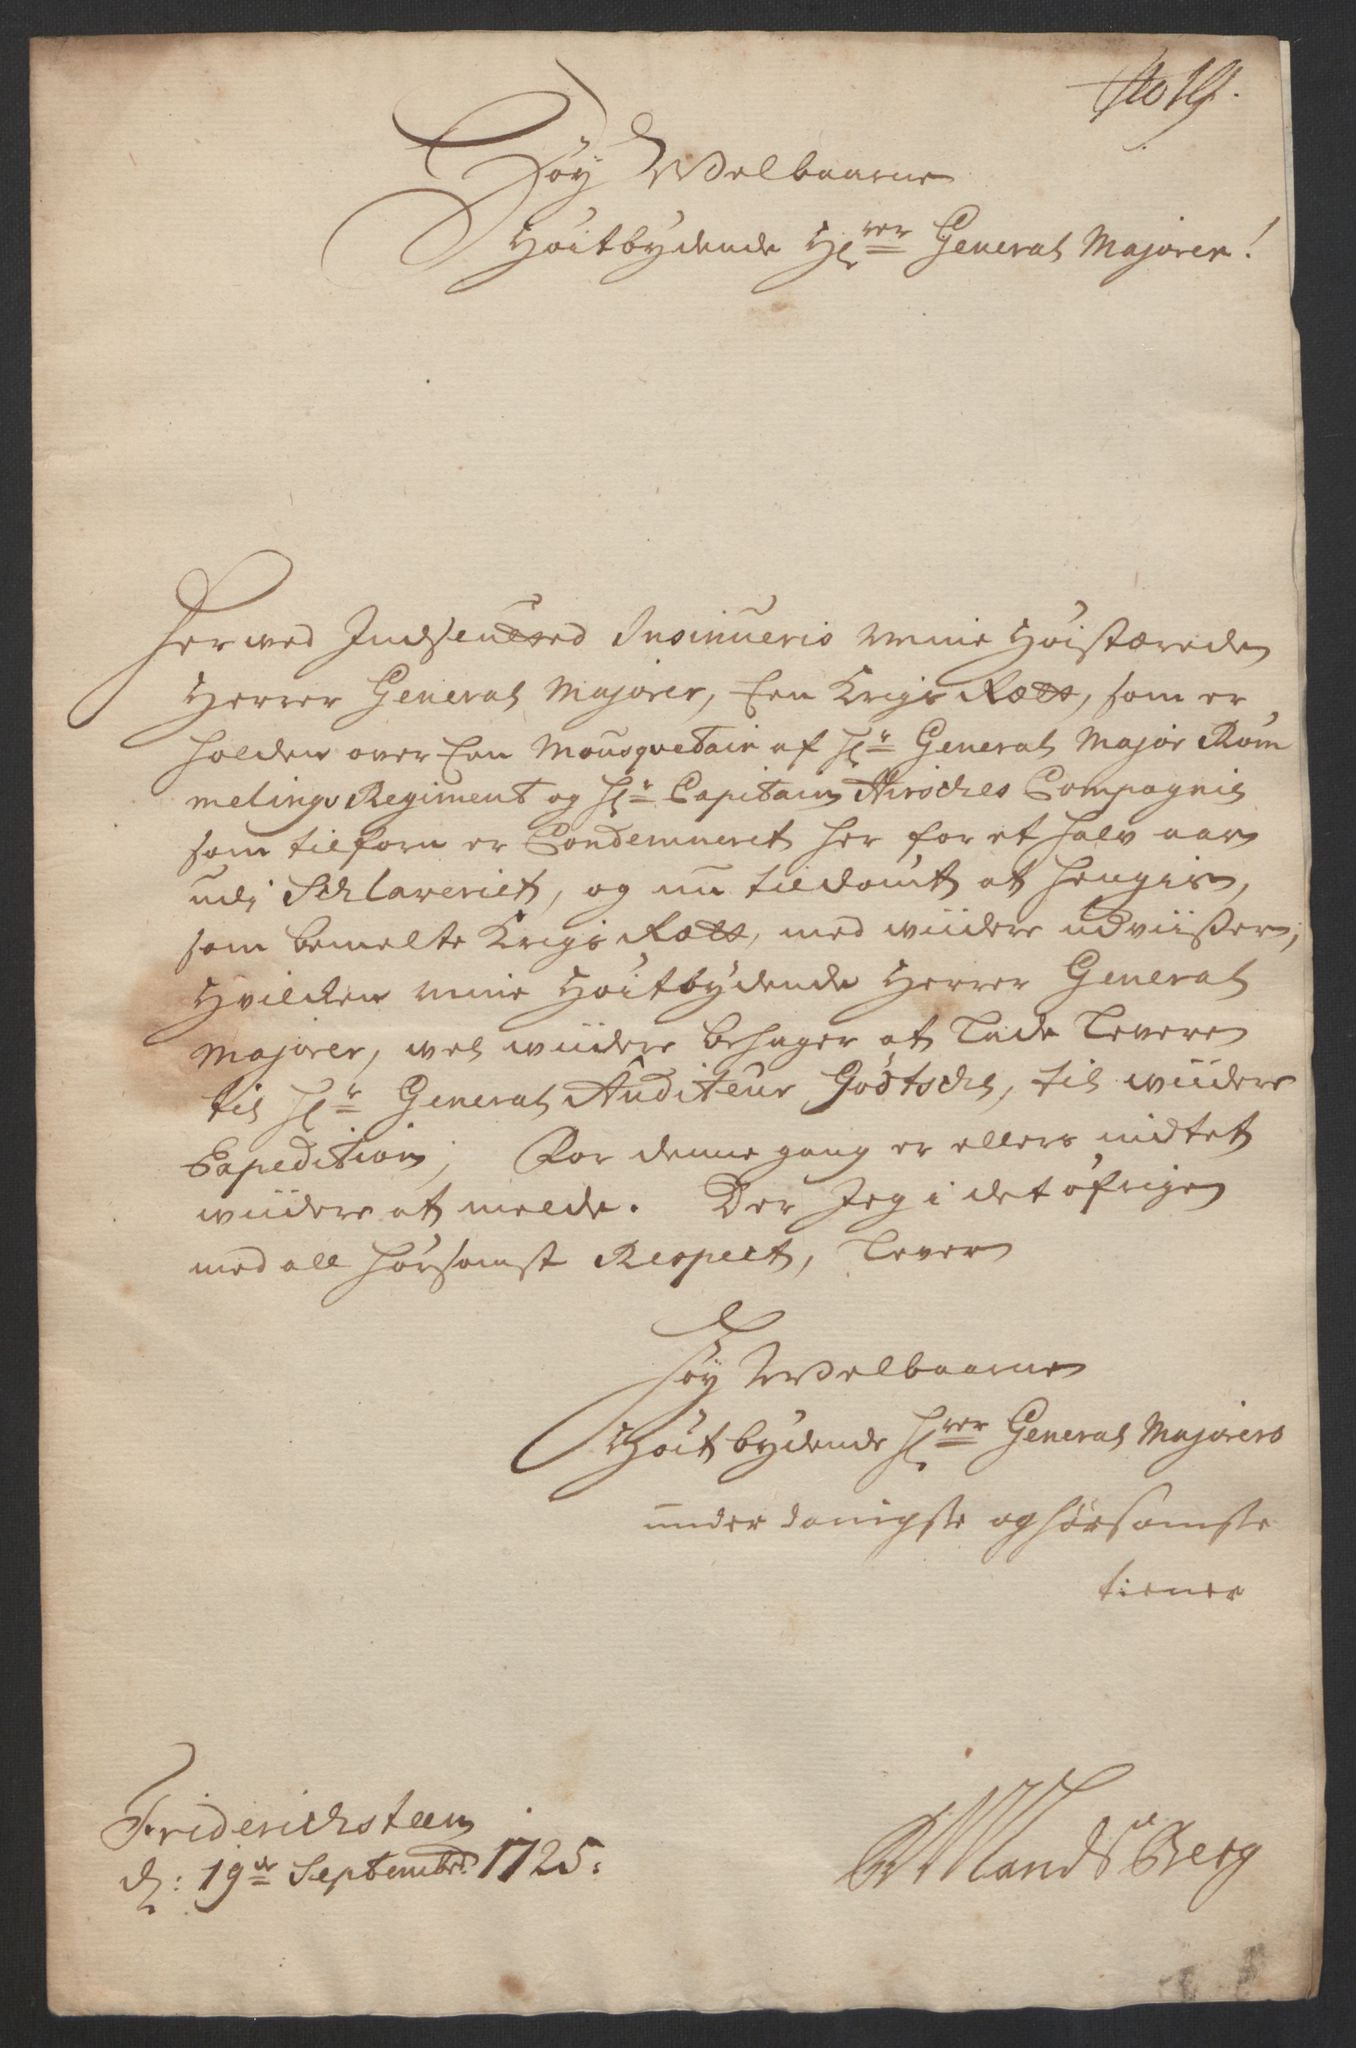 No 19.
Høy Welbaarne
Høitbydende Hrer General Majorer!
Her wed Indsendted Insinueris Mine Høistærede
Herrer General Majorer, Een Krigs Rætt, som er
holden over Een Mousquetair af Hr General Major Röm
melings Regiment og Hr Capitain Hirsches Compagnie
som tilforn er Condemneret her for et halv aar
udj Schlaveriet, og nu tildömt at hengis,
som bemelte Krigs Rætt, med wiidere udviißer,
Hvilcken Mine Høitbydende Herrer General
Majorer, wel wiidere behager at Lade Levere
til Hr General Auditeur Gödtsche, til wiidere
Expedition; For denne gang er ellers nidtet
wiidere at melde. Der Jeg i det öfrige
med all hörsomst Respect, Lever
Høy Welbaarne
Høitbydende Hrer General Majorers
underdanigste og hørsomste
tiener
Friderichsteen
d: 19de Septembr: 1725:
Landsberg